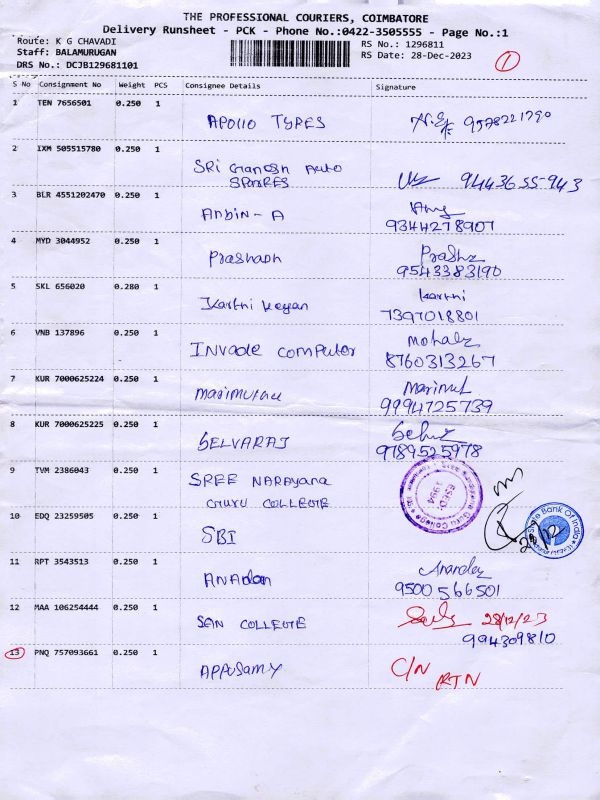 THE PROFESSIONAL COURIERS, COIMBATORE
Delivery Runsheet - PCK - Phone No.:0422-3505555 - Page No.:1
Route: K G CHAVADI
Staff: BALAMURUGAN
DRS No.: DCJB129681101
RS No.: 1296811
RS Date: 28-Dec-2023
1
S No Consignment No Weight PCS Consignee Details Signature
1 TEN 7656501 0.250 1
APOLLO TYPES 9578221790
2 IXM 505515780 0.250 1
SRI Ganesh Auto
SPARES 9443655-943
3 BLR 4551202470 0.250 1
Anbin-A
9344278907
4 MYD 3044952 0.250 1
Prashanh
9543383190
5 SKL 656020 0.280 1
Karthi Keyan Karthi
7397018801
6 VNB 137896 0.250 1
INVADE COMPUTER
8760313267
7 KUR 7000625224 0.250 1
Marimuthu
9994725739
8 KUR 7000625225 0.250 1
SELVARAJ
9789525978
9 TVM 2386043 0.250 1
SREE NARAYANA
GURU COLLEGE
ESTD. 1994
10 EDQ 23259505 0.250 1
SBI
State Bank Of India
11 RPT 3543513 0.250 1
9500566501
12 MAA 106254444 0.250 1
SAN COLLEGE 28/12/23
994309810
13 PNQ 757093661 0.250 1
APPUSAMY C/N
RTN